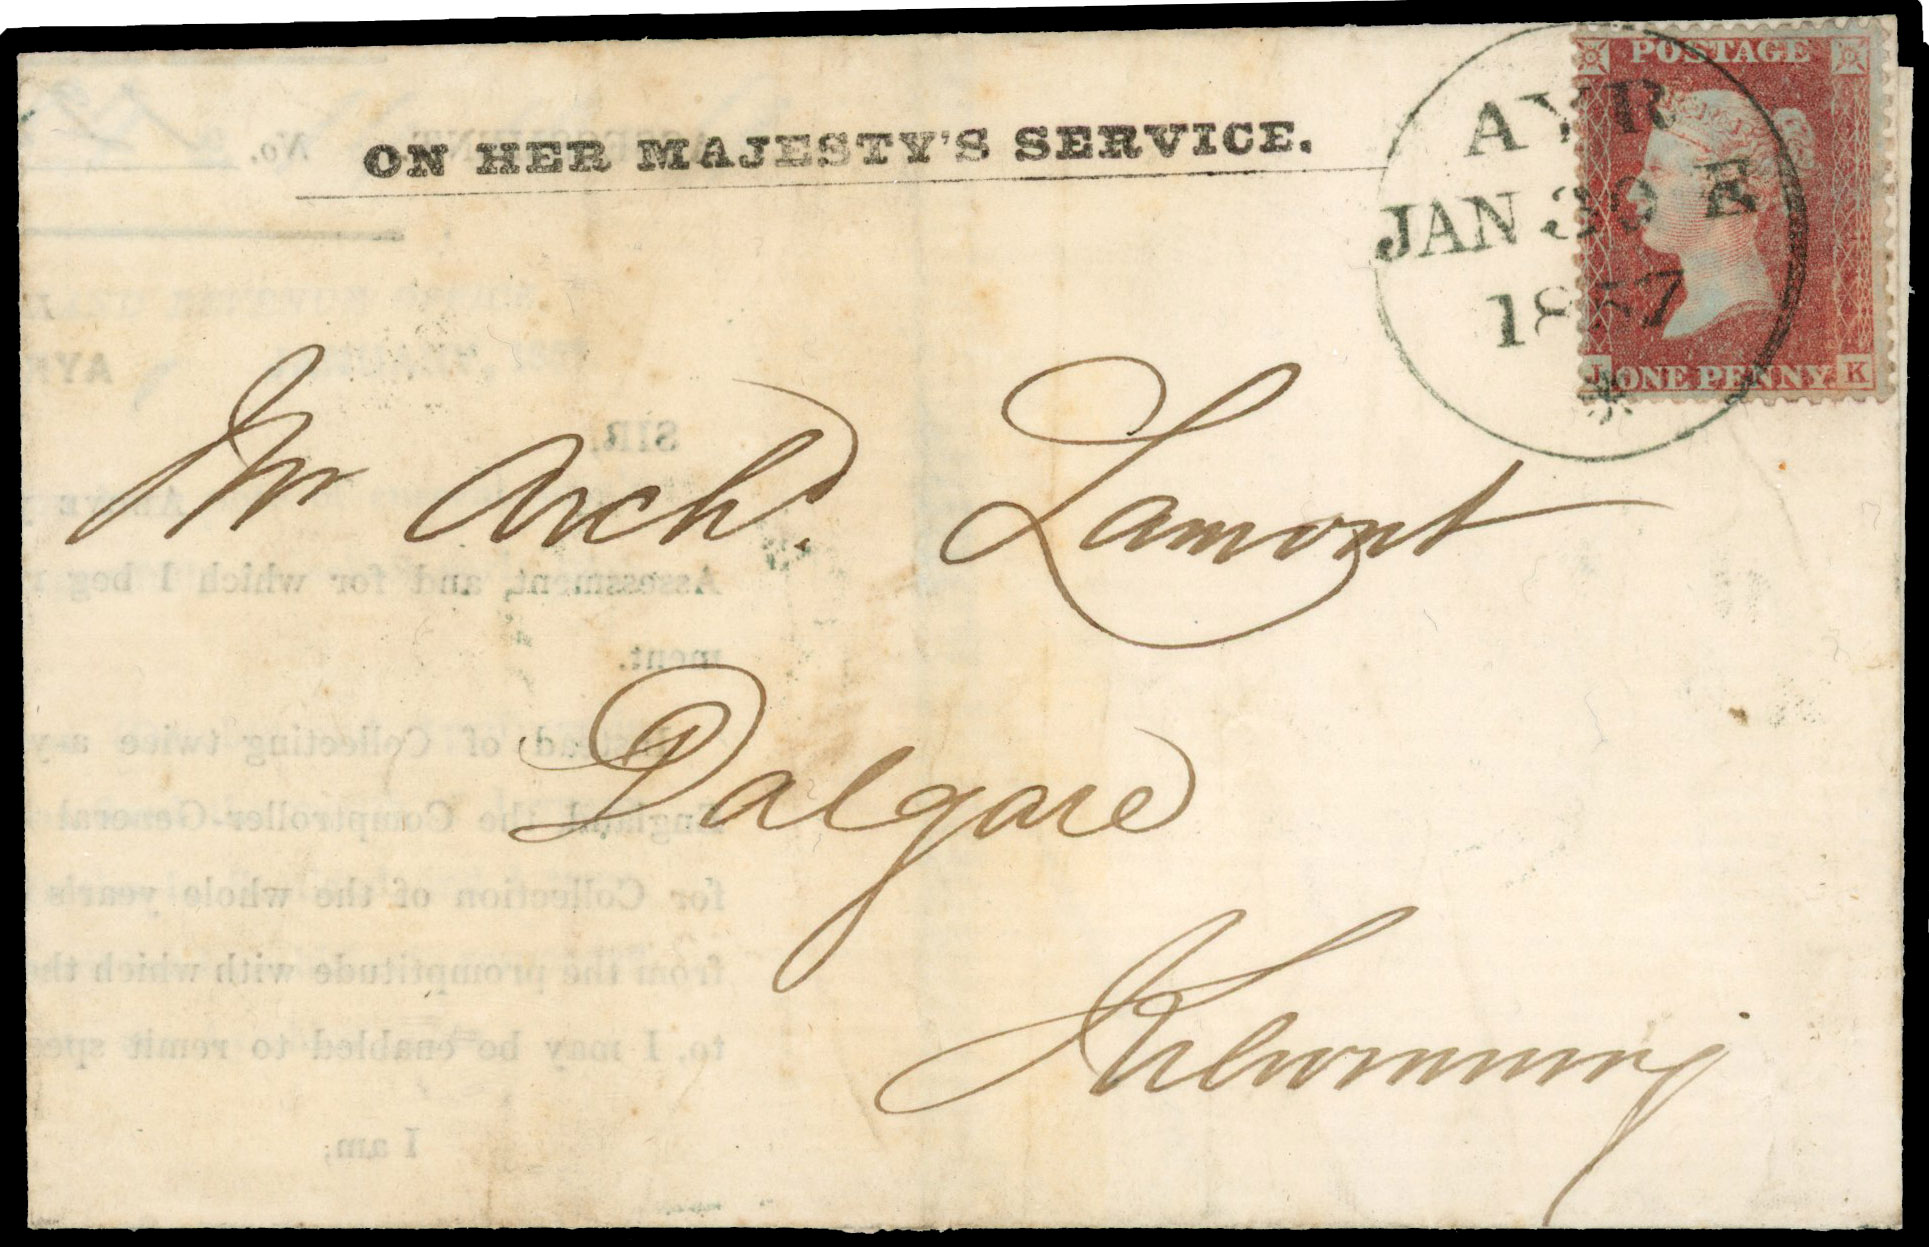 ON HER MAJESTY'S SERVICE.
POSTAGE
AYR
JAN 30 E
1857
ONE PENNY K
Mr Archd. Lamont
Dalgare
Kilwinning
No.
AYR
SIR,
Assessment, and for which I beg
ment.
Instead of Collecting twice a-y
England the Comptroller-General
for Collection of the whole year's
from the promptitude with which th
to, I may be enabled to remit spe
I am;